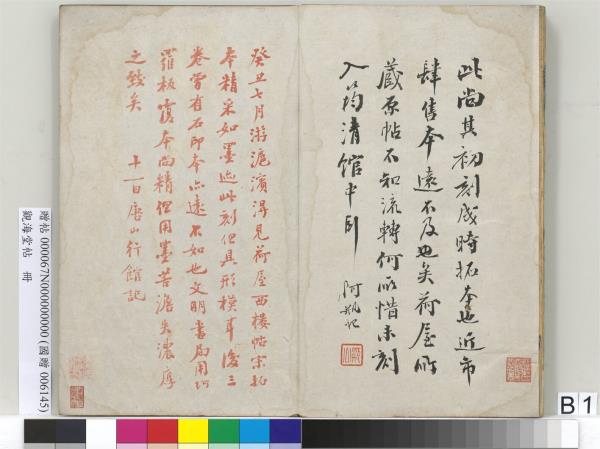 此尚其初刻成時拓本也近市
肆售本遠不及也矣荷屋所
藏原帖不知流轉何所惜未刻
入筠清館中耳
阿瓶記
癸丑七月游滬濱得見荷屋西樓帖宗拓
本精采如墨迹此刻但具形模耳後三
卷曾有石印本亦遠不如也文明書局用珂
羅板覆本尚精但用墨苦澹失濃厚
之致矣
十一日唐山行館記
贈帖 000067N000000000 (國贈 006145)
觀海堂帖 冊
B 1